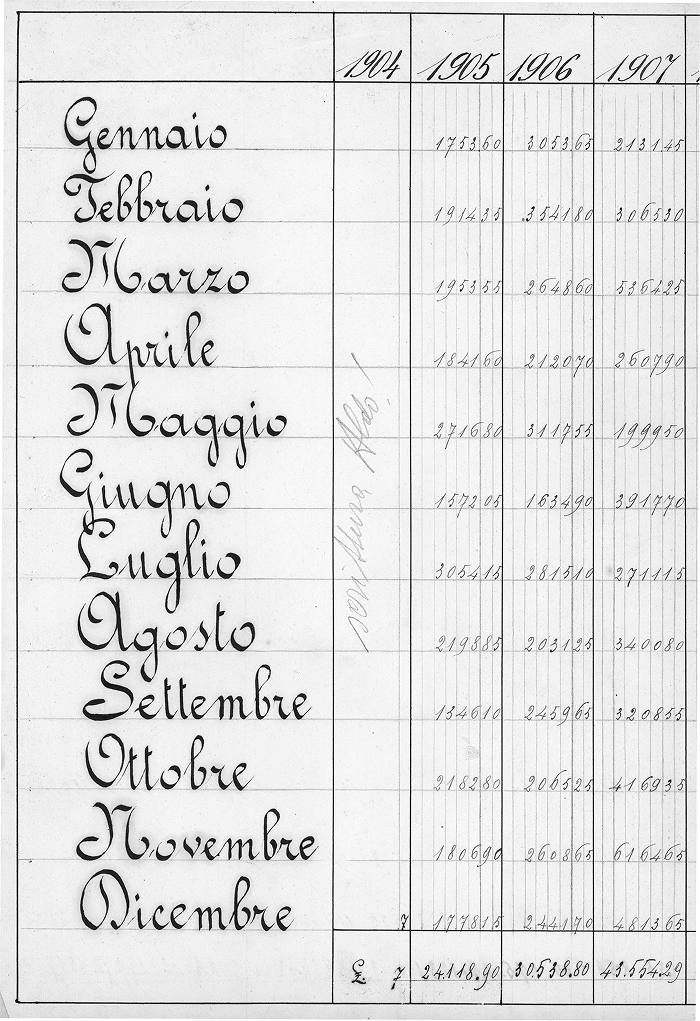 1904 1905 1906 1907
Gennaio 175360 305365 213145
Febbraio 191435 354180 306530
Marzo 195355 264860 536425
Aprile 184160 212070 260790
Maggio 271680 311755 199950
Giugno 157205 163490 391770
Luglio 305415 281510 271115
Agosto 219885 203125 340080
Settembre 134610 245965 320855
Ottobre 218280 206525 416935
Novembre 180690 260865 616465
Dicembre 7 177815 244170 481365
£ 7 24.118.90 30.538.80 43.554.29
scrittura Aldo!